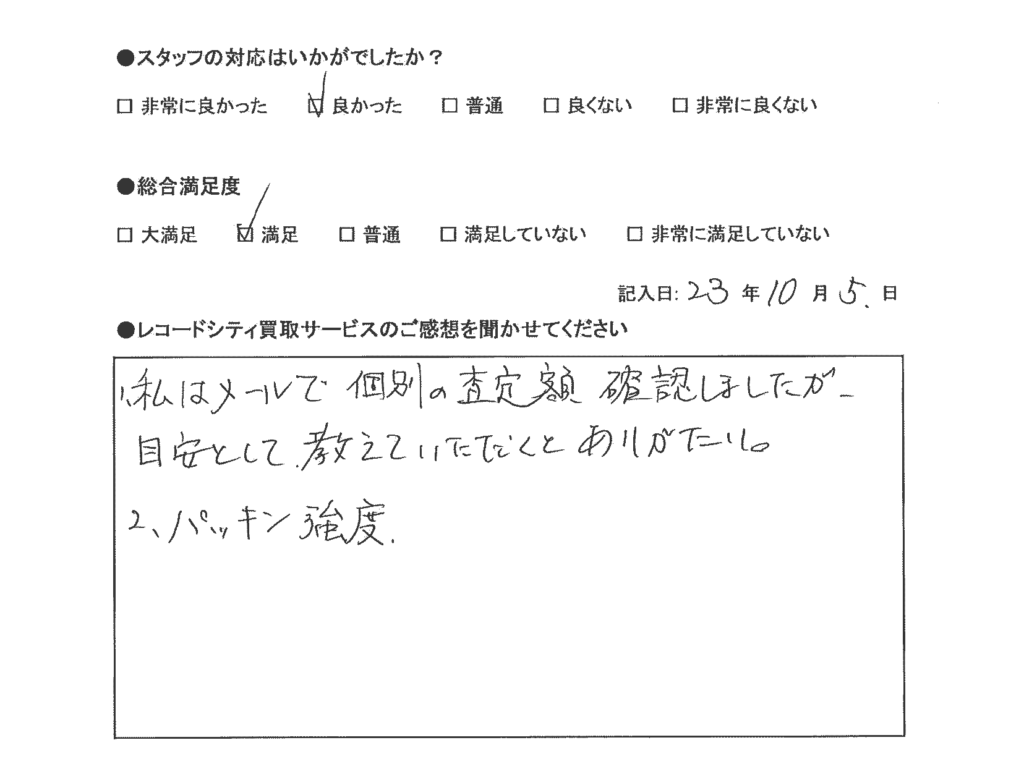 ●スタッフの対応はいかがでしたか？
□ 非常に良かった ☑ 良かった □ 普通 □ 良くない □ 非常に良くない
●総合満足度
□ 大満足 ☑ 満足 □ 普通 □ 満足していない □ 非常に満足していない
記入日: 23 年 10 月 5. 日
●レコードシティ買取サービスのご感想を聞かせてください
1、私はメールで 個別の査定額 確認しましたが、
目安として、教えていただくと ありがたい。
2、パッキン強度.